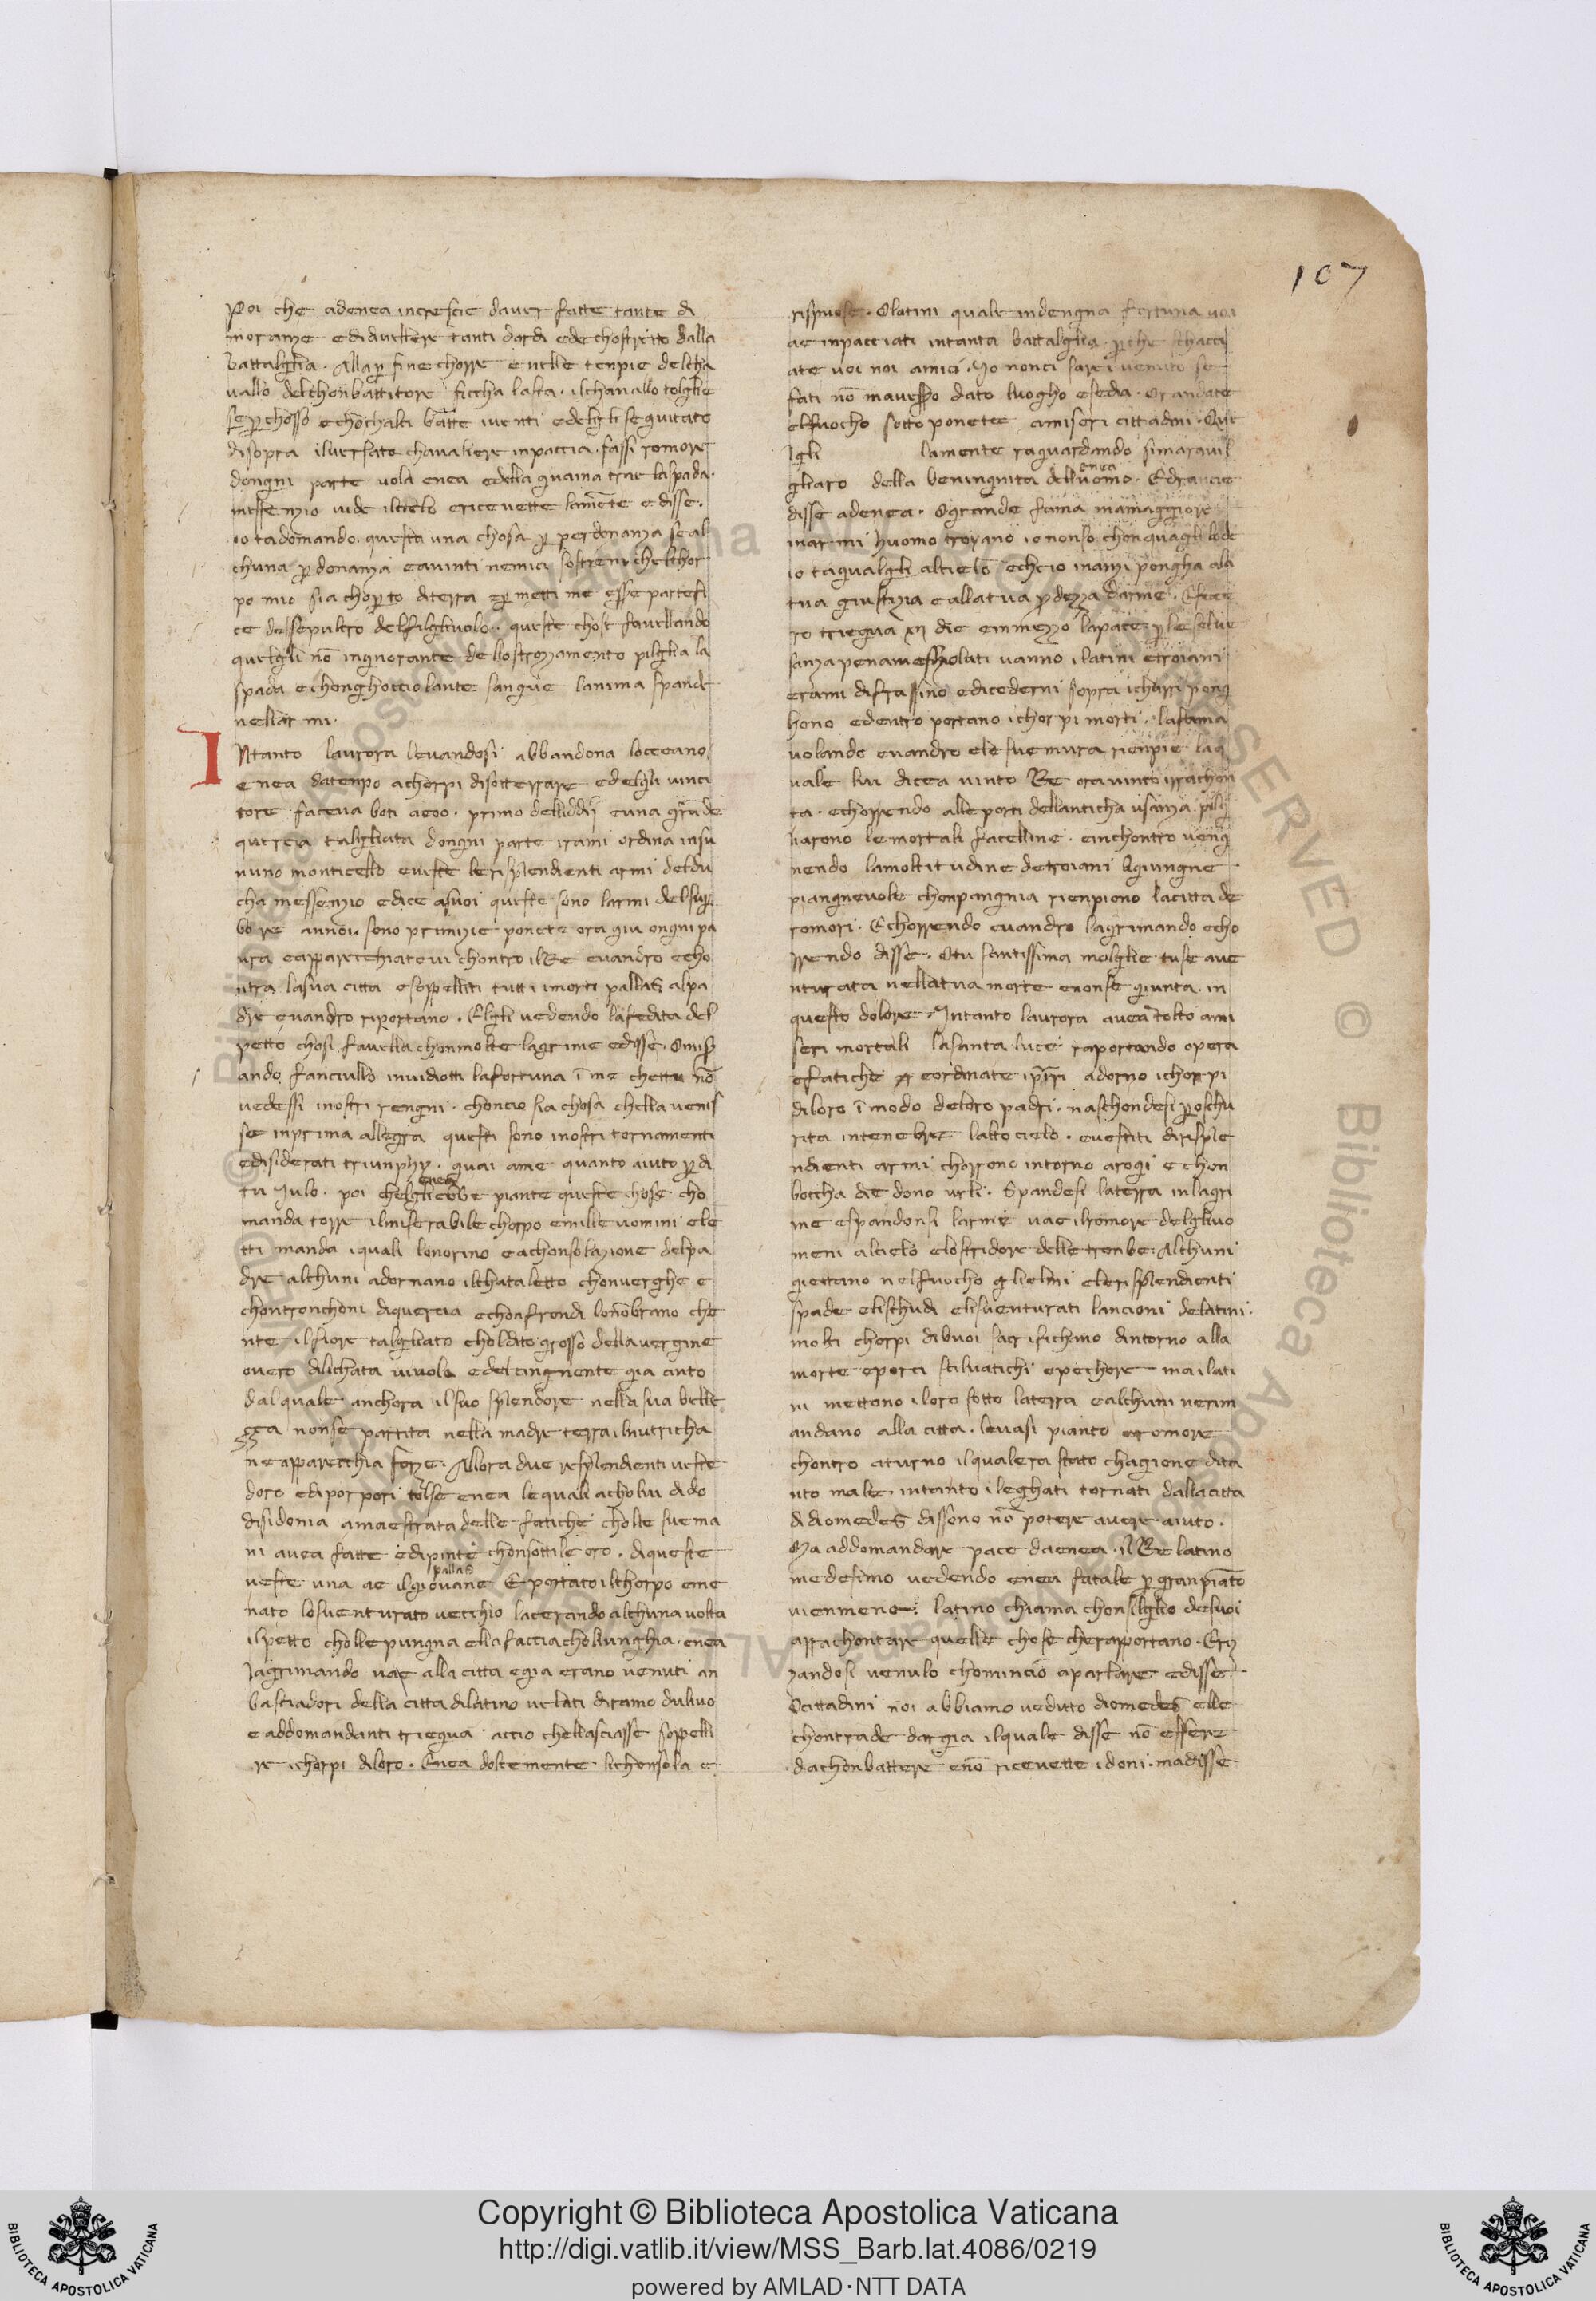 107
Poi che adenea increscie daver fatte tante di
moranze edidivellere tanti dardi ede chostretto dalla
battalglia. Alla p̱ fine chorre e nelle tenpie delcha
vallo delchonbattitore ficcha lasta. ilchavallo tolglie
se p̱chosso echo chalci batte iventi edelgli seguitato
disopra ilversato chavaliere inpaccia. fassi romore
dongni parte vola enea edella guaina trae laspada.
messenzio vide ilcielo ericevette lamēte edisse.
io tadomando. questa una chosa p̱ perdonanza se al
chuna p̱donanza eavinti nemici sostieni chelchor
po mio sia chop̱to diterra ep̱metti me esse partefi
ce dessepulcro delfilgliuolo. queste chose favellando
quelgli nō ingnorante dellostrozamento pilglia la
spada echonghocciolante sangue lanima spande
nellar mi.
INtanto laurora levandosi abbandona locceano
enea datenpo achorpi disotterrare edelgli vinci
tore faceva boti aeoo. primo dellidddij euna grāde
quercia talgliata dongni parte irami ordina insu
nuno monticello eveste lerisplendienti armi deldu
cha messenzio edice asuoi queste sono larmi delsup̱
bo re annoi. sono primizie ponete ora giu ongni pa
ura eapparecchiatevi chontro ilRe evandro echo
ntra lasua citta esoppelliti tutti imorti pallas alpa
dre evandro riportano. Elgli vedendo lafedita del
petto chosi favella chonmolte lagrime edisse. Omis̄
ando fanciullo invidiotti lafortuna ī me chettu nō
vedessi inostri rengni. choncio sia chosa chella venis
se inprima allegra questi sono inostri tornamenti
edisiderati triunphy. guai ame quanto aiuto p̱di
enea
tu Julo. poi chelgliebbe piante queste chose cho
manda torre ilmiserabile chorpo emille uomini ele
tti manda iquali lonorino eachonsolazione delpa
dre alchuni adornano ilchataletto chonverghe e
chontronchoni diquercia echonfrondi lonōbrano che
nte ilfiore talgliato choldito grosso dellavergine
overo dilichata vivola edelcingnente gia cinto
dal quale anchora ilsuo splendore nella sua belle
zza nonse partita nella madre terra ilnutricha
ne apparecchia forze. Allora due risplendienti veste
doro ediporpori tolse enea lequali acholui dido
disidonia amaestrata delle fatiche cholle sue ma
ni avea fatte edipinte chonsottile oro. diqueste
pallas
veste una ae ilgiovane Eportato ilchorpo eme
nato losventurato vecchio lacerando alchuna volta
ilpetto cholle pungna ellafaccia chollunghia. enea
lagrimando vae alla citta egia erano venuti an
basciadori della citta dilatino velati diramo dulivo
e addomandanti triegua accio chellasciasse soppelli
re ichorpi diloro. Enea dolcemente lichonsola e
rispuose. Olatini quale indengna fortuna voi
ae inpacciati intanta battalglia. p̱che schacci
ate voi noi amici. Io nonci sarei venuto se
fati nō mavesso dato luogho eseda. Or andate
elfuocho sotto ponete amiseri cittadini. Que
lgli lamente raguardando simaravil
enea
gliaro della beningnita delluomo. Edrancie
disse adenea. Ogrande fama mamaggiore
inarmi huomo troyano io nonso chonquagli lode
io taqualgli alcielo echeio inanzi pongha ala
tua giustizia eallatua p̱dezza darme. Efece
ro triegua xij die emmezzo lapace p̱ le selve
sanza pena meschiolati vanno ilatini etroiani
erami difrassino edicederni sopra icharri pong
hono edentro portano ichorpi morti. lafama
volando evandro ele sue mura rienpie laq
uale lui dicea vinto Re ora vinto irachon
ta. echorrendo alle porti dellanticha usanza pilg
liarono le mortali facelline. einchontro veng
nendo lamoltitudine detroiani agiungne
piangnevole chonpangnia rienpiono lacitta de
romori. Echorrendo evandro lagrimando echo
rrendo disse. Otu santissima molglie tuse ave
nturata nellatua morte enonse giunta. in
questo dolore. Intanto laurora avea tolto ami
seri mortali lasanta luce raportando opera
efatiche eordinate ip̄tri adorno ichorpi
diloro ī modo deloro padri. naschondesi p̱oschu
rita intenebre lalto cielo. evestiti dirisple
ndienti armi chorrono intorno arogi e chon
boccha die dono urli. Spandesi laterra inlagri
me espandonsi larme vae ilromore delgliuo
meni alcielo elostridore delle tronbe. Alchuni
giettano nelfuocho glielmi elerisplendienti
spade elischudi elisventurati lancioni delatini.
molti chorpi dibuoi sacrifichano dintorno alla
morte eporci salvatichi epechore ma ilati
ni mettono iloro sotto laterra ealchuni nerim
andano alla citta. levasi pianto eromore
chontro aturno ilqualera stato chagione dita
nto male. intanto ileghati tornati dallacitta
di diomedes dissono nō potere avere aiuto.
Ma addomandare pace daenea. ilRe latino
medesimo vedendo enea fatale p̱ granpiāto
vienmeno. latino chiama chonsilglio desuoi
arrachontare quelle chose cherapportano. Eriz
zandosi venulo chomincio aparlare edisse.
Ocittadini noi abbiamo veduto diomedes elle
chontrade dargia ilquale disse nō essere
dachonbattere enō ricevette idoni. madisse
Copyright © Biblioteca Apostolica Vaticana
http://digi.vatlib.it/view/MSS_Barb.lat.4086/0219
powered by AMLAD·NTT DATA
BIBLIOTECA APOSTOLICA VATICANA
BIBLIOTECA APOSTOLICA VATICANA